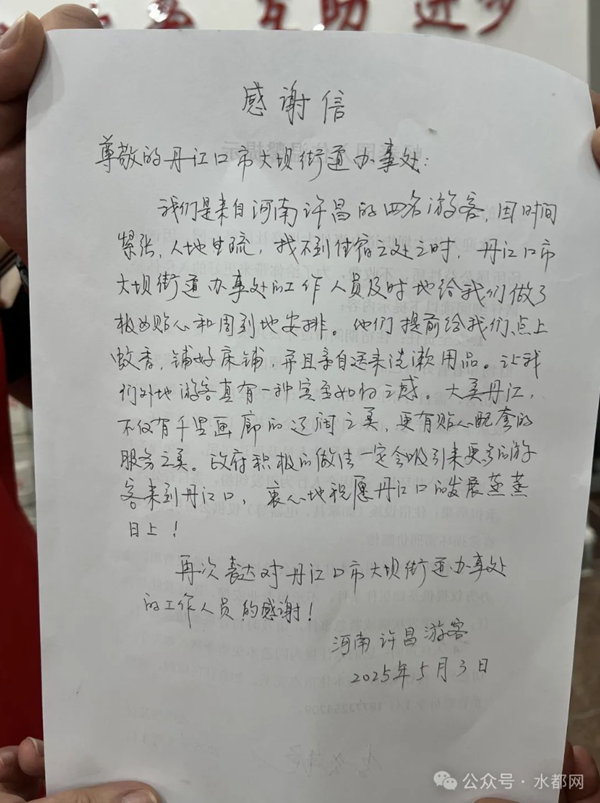 互助 进步
感谢信
尊敬的丹江口市大坝街道办事处:
我们是来自河南许昌的四名游客,因时间
紧张,人地生疏,找不到住宿之处之时,丹江口市
大坝街道办事处的工作人员及时地给我们做了
极为贴心和周到地安排。他们提前给我们点上
蚊香,铺好床铺,并且亲自送来洗漱用品。让我
们外地游客真有一种宾至如归之感。大美丹江,
不仅有千里画廊的辽阔之美,更有贴心配套的
服务之美。政府积极的做法一定会吸引来更多的游
客来到丹江口,衷心地祝愿丹江口的发展蒸蒸
日上!
再次表达对丹江口市大坝街道办事处
的工作人员的感谢!
河南许昌游客
2025年5月3日
公众号·水都网